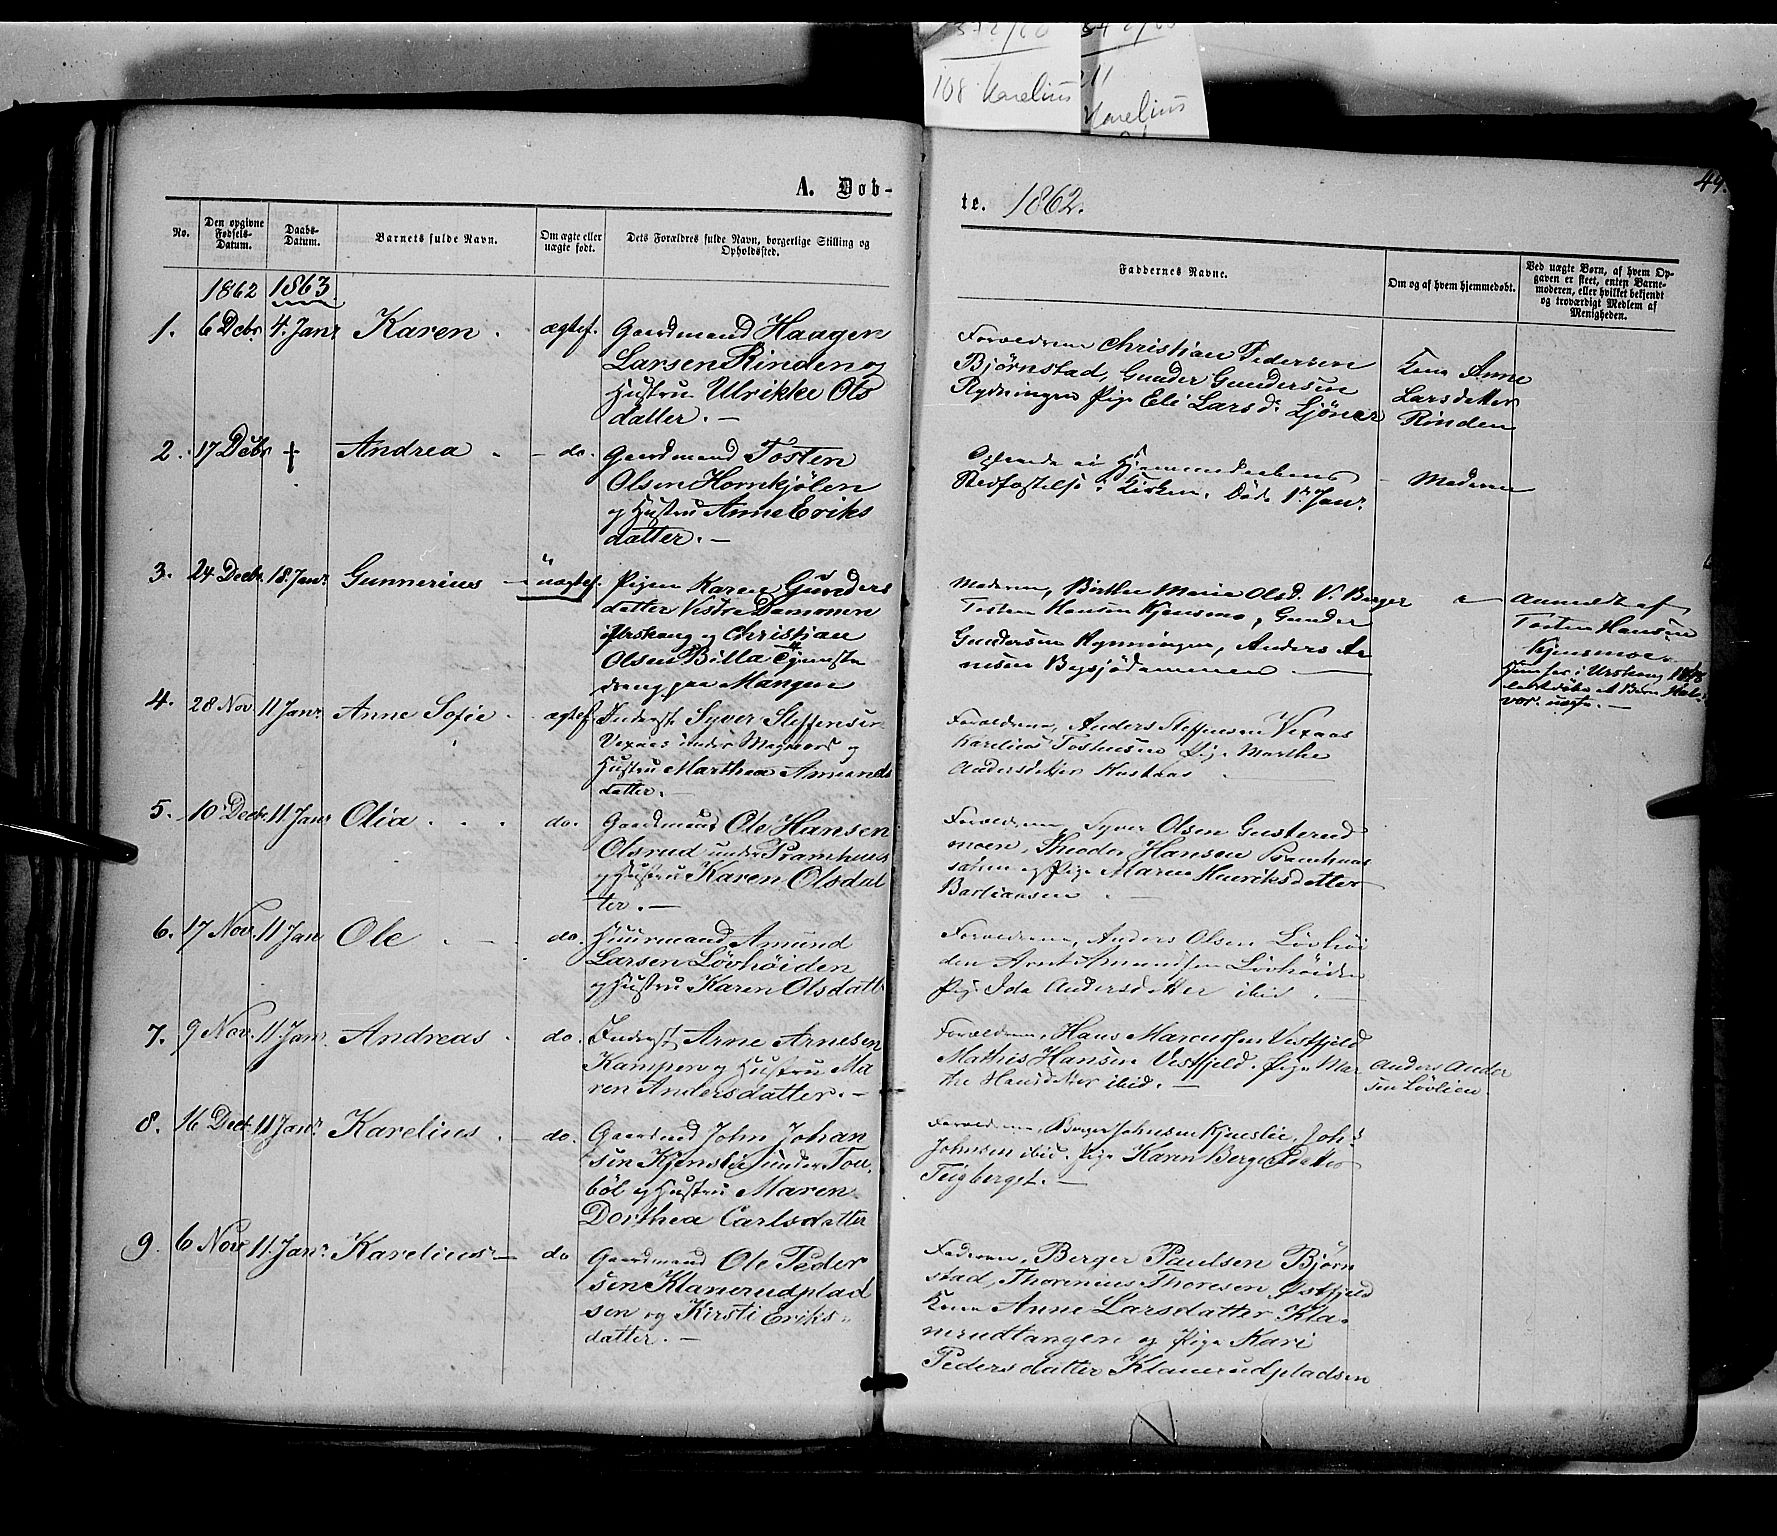 108 Karelius
Karelius
A. Døb-
te. 1862.
44.
No.
Den opgivne Fødsels-Datum.
Daabs-Datum.
Barnets fulde Navn.
Om ægte eller uægte født.
Dets Forældres fulde Navn, borgerlige Stilling og Opholdssted.
Faddernes Navne.
Om og af hvem hjemmedøbt.
Ved uægte Børn, af hvem Op-
gaven er skeet, enten Barne-
moderen, eller hvilket bekjendt
og troværdigt Medlem af
Menigheden.
1862 1863
1. 6 Decbr 4. Janr Karen. ægtef.
Gaardmand Haagen
Larsen Rinden og
Hustru Ulrikke Ols
datter. —
Forældrene Christian Pedersen
Bjørnstad, Gunder Gundersen
Rydningen Pige Eli Larsd.
Kone Anne
Larsdatter
Rinden
2. 17 Decbr + Andrea - do.
Gaardmand Tosten
Olsen Hornkjølen
og Hustru Anne Eriks
datter. —
Stedfæstelse i Kirken. Død 1 Janr.
Moderen
3. 24 Decbr. 18. Janr. Gunnerius uægtef.
Pigen Karen Gunders
datter Vestre Dammen
i Urskoug og Christian
Olsen Billa Tjeneste
dreng paa Mangen
Moderen, Birthe Marie Olsd. V. Berger
Tosten Hansen Kjensmo, Gunder
Gundersen Rynningen, Anders Ar
nesen Bysjødammen —
Anmeldt af
Tosten Hansen
Kjensmoe
4. 28 Nov 11 Janr. Anne Sofie. ægtef.
Inderst Syver Steffensen
Vexaas under Magnor og
Hustru Marthea Amunds
datter. —
Forældrene, Anders Steffensen Vexaas
Karelius Tostensen Pige Marthe
Andersdatter
5. 10 Decbr. 11 Janr Olia . . . do.
Gaardmand Ole Hansen
Olsrud under Pramhuus
og Hustru Karen Olsdat
ter. —
Forældrene, Syver Olsen Gusterud
moen, Theodor Hansen Pramhuus
og Pige Maren Henriksdatter
6. 17 Nov. 11 Jan Ole . - do.
Huurmand Amund
Larsen Løvhöiden
og Hustru Karen Olsdatt
Forældrene, Anders Olsen Løvhöi
den Arnt Amundsen Løvhöiden
Pige Ida Andersdatter ibid. —
7. 9 Nov. 11 Jan. Andreas . do.
Inderst Arne Arnesen
Kampen og Hustru Ma
ren Andersdatter. —
Forældrene, Hans Marcussen Vestfjeld
Mathis Hansen Vestfjeld. Pige Mar
the Hansdatter ibid. —
Anders Ander
sen Løvlien.
8. 16 Decbr. 11 Janr. Karelius. — do.
Gaardmd John Johan
sen Kjenslie under Tou-
böl og Hustru Maren
Dorthea Carlsdatter
Forældrene, Berger Johnsen Kjenslie, Johs
Johnsen ibid. Pige Karen Bergersdatter
Teigberget. —
9. 6 Nov. 11. Janr. Karelius — do
Gaardmand Ole Peder
sen Klanerudplad
sen og Kirsti Eriks-
datter. —
Faderen, Berger Paulsen Björn
stad, Thorenius Thoresen Østfjeld
Kone Anne Larsdatter Kla-
nerudtangen og Pige Kari
Pedersdatter Klanerudpladsen